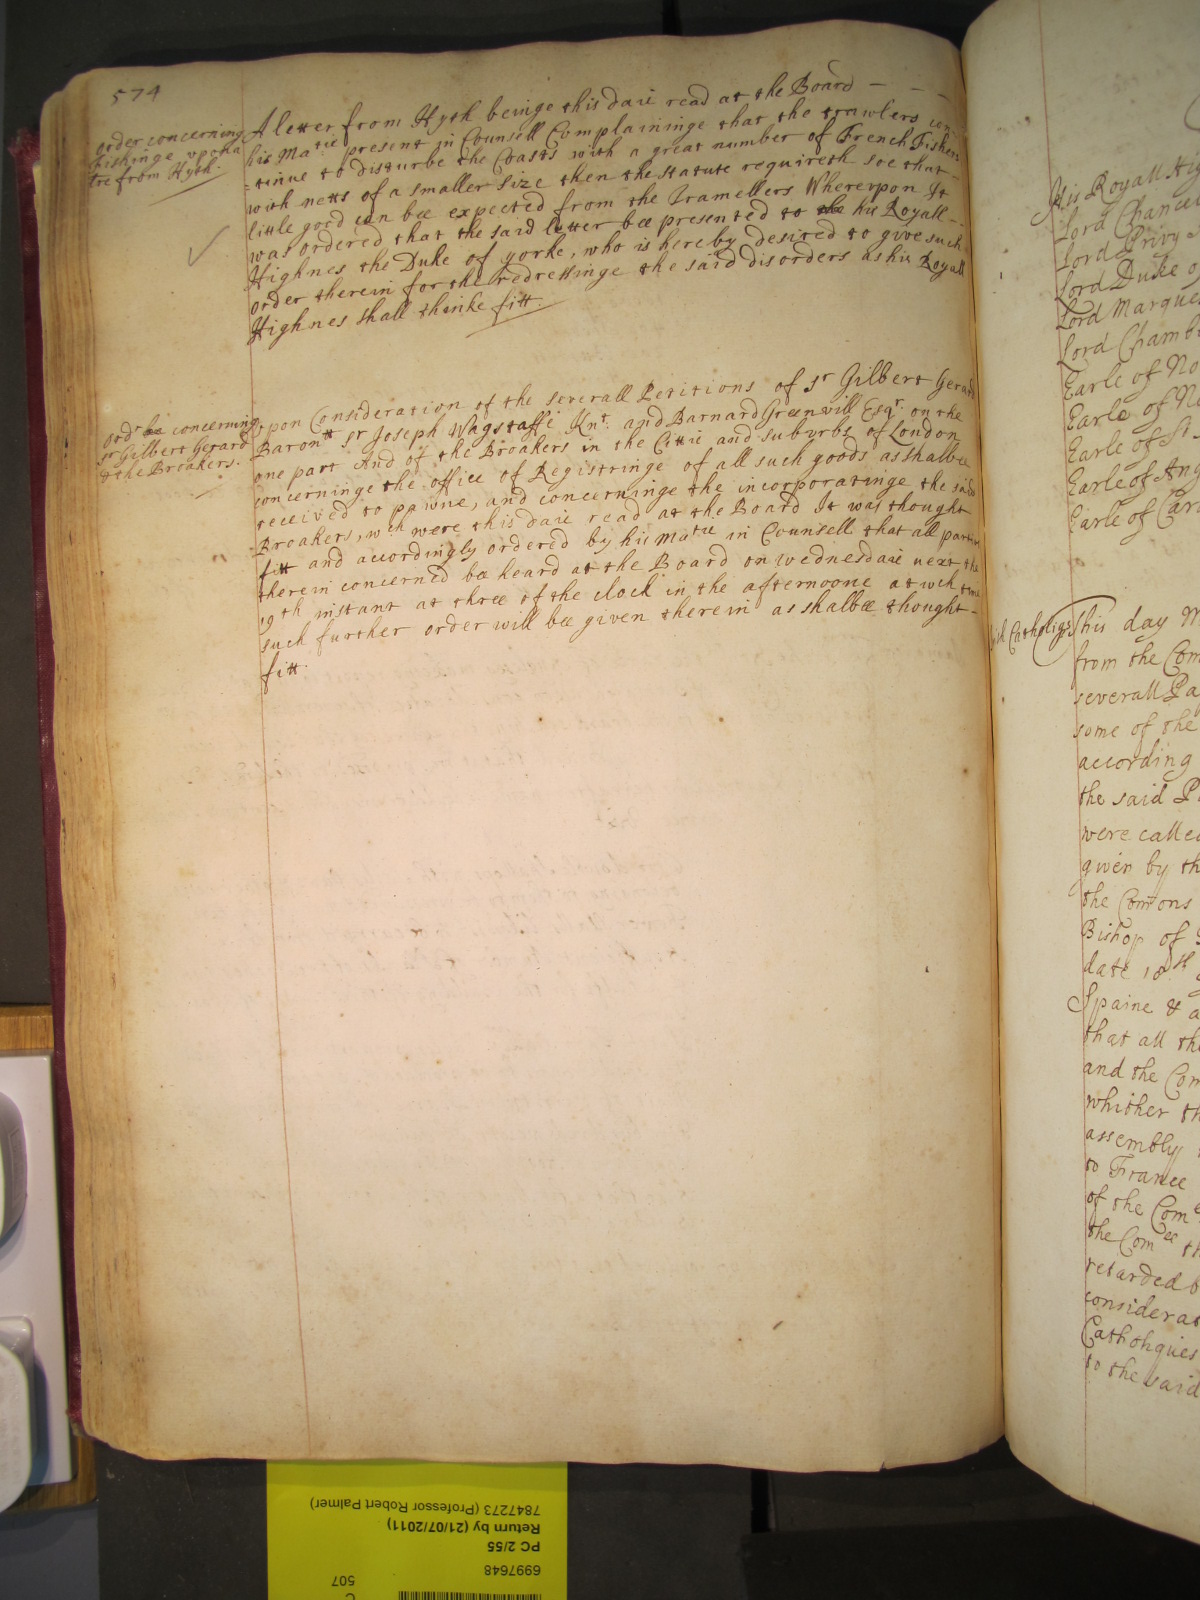 574
order concerning
Fishinge vpon a
lre from Hyth.
A letter from Hyth beinge this daie read at the Board — — —
his Matie present in Counsell Complaininge that the trawlers con-
-tinue to disturbe the Coasts with a great number of French Fishers
with netts of a smaller size then the statute requireth soe that-
little good can bee expected from the Tramellers Wherevpon It
was ordered that the said letter bee presented to his Royall-
Highnes the Duke of yorke, who is hereby desired to give such
order therein for the redressinge the said disorders as his Royall
Highnes shall thinke fitt.
ordr concerning
sr Gilbert Gerard
& the Broakers.
vpon Consideration of the severall Peticions of sr Gilbert Gerard
Barontt sr Joseph Wagstaffe Knt. and Barnard Greenvill Esqr. on the
one part And of the Broakers in the Cittie and suburbs of London
concerninge the office of Registringe of all such goods as shalbee
received to pawne, and concerninge the incorporatinge the said
Broakers, wch were this daie read at the Board It was thought
fitt and accordingly ordered by his Matie in Counsell that all parties
therein concerned bee heard at the Board on wednesdaie next the
19th instant at three of the clock in the afternoone at wch time
such further order will bee given therein as shalbee thought-
fitt.
His Royall Hig
Lord Chancel
Lord Privy
Lord Duke of
Lord Marques
Lord Chamb
Earle of No
Earle of
Earle of St
Earle of Ang
Earle of Car
Catholiqs
This day M
from the Com
severall Pa
some of the
according
the said P
were called
given by th
the Comons
Bishop of
date 18th
Spaine & a
that all the
and the Com
whither th
assembly
to France
of the Come
the Comee th
retarded b
considerat
Catholiques
to the said
7847273 (Professor Robert Palmer)
Return by (21/07/2011)
PC 2/55
6997648
507